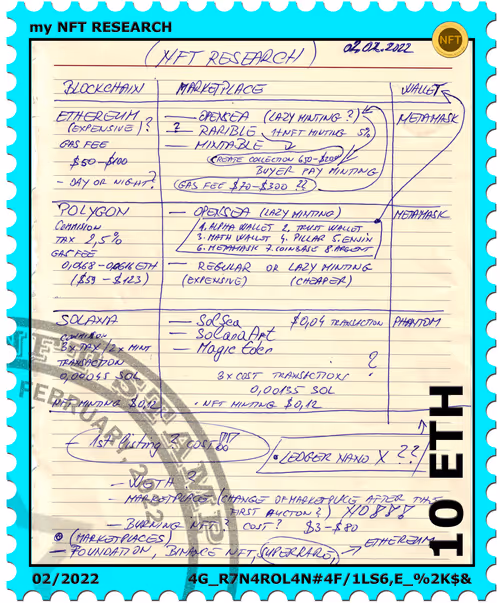 my NFT RESEARCH
NFT
(NFT RESEARCH) 02.02.2022
BLOCKCHAIN MARKETPLACE WALLET
ETHEREUM — OPENSEA (LAZY MINTING?) METAMASK
(EXPENSIVE)? ? — RARIBLE 1 NFT MINTING 5%
GAS FEE — MINTABLE
$50-$100 (CREATE COLLECTION
BUYER PAY MINTING
- DAY OR NIGHT? (GAS FEE $70-$300 ??)
POLYGON — OPENSEA (LAZY MINTING) METAMASK
COMMISION 1. ALPHA WALLET 2. TRUST WALLET
TAX 2,5% 3. MATH WALLET 4. PILLAR 5. ENJIN
GAS FEE 6. METAMASK 7. COINBASE 8. ARGENT
— REGULAR OR LAZY MINTING
($59 - $123) (EXPENSIVE) (CHEAPER)
SOLANA — SolSea $0,04 TRANSACTION PHANTOM
— SolanaArt
3x PAY / 2x MINT — Magic Eden
TRANSACTION ?
0,00045 SOL 3x COST TRANSACTIONS
0,00135 SOL
NFT MINTING $0,12 • NFT MINTING $0,12
- 1st listing? cost!!!
• LEDGER NANO X ??
- WETH?
- MARKETPLACE (CHANGE OF MARKETPLACE AFTER THE
FIRST AUCTION?)
- BURNING NFT? COST? $3-$80
(MARKETPLACES) ETHEREUM
— FOUNDATION, BINANCE NFT, SUPERRARE,
10 ETH
NFT STAMP
FEBRUARY, 2022
02/2022 4G_R7N4ROL4N#4F/1LS6,E_%2K$&